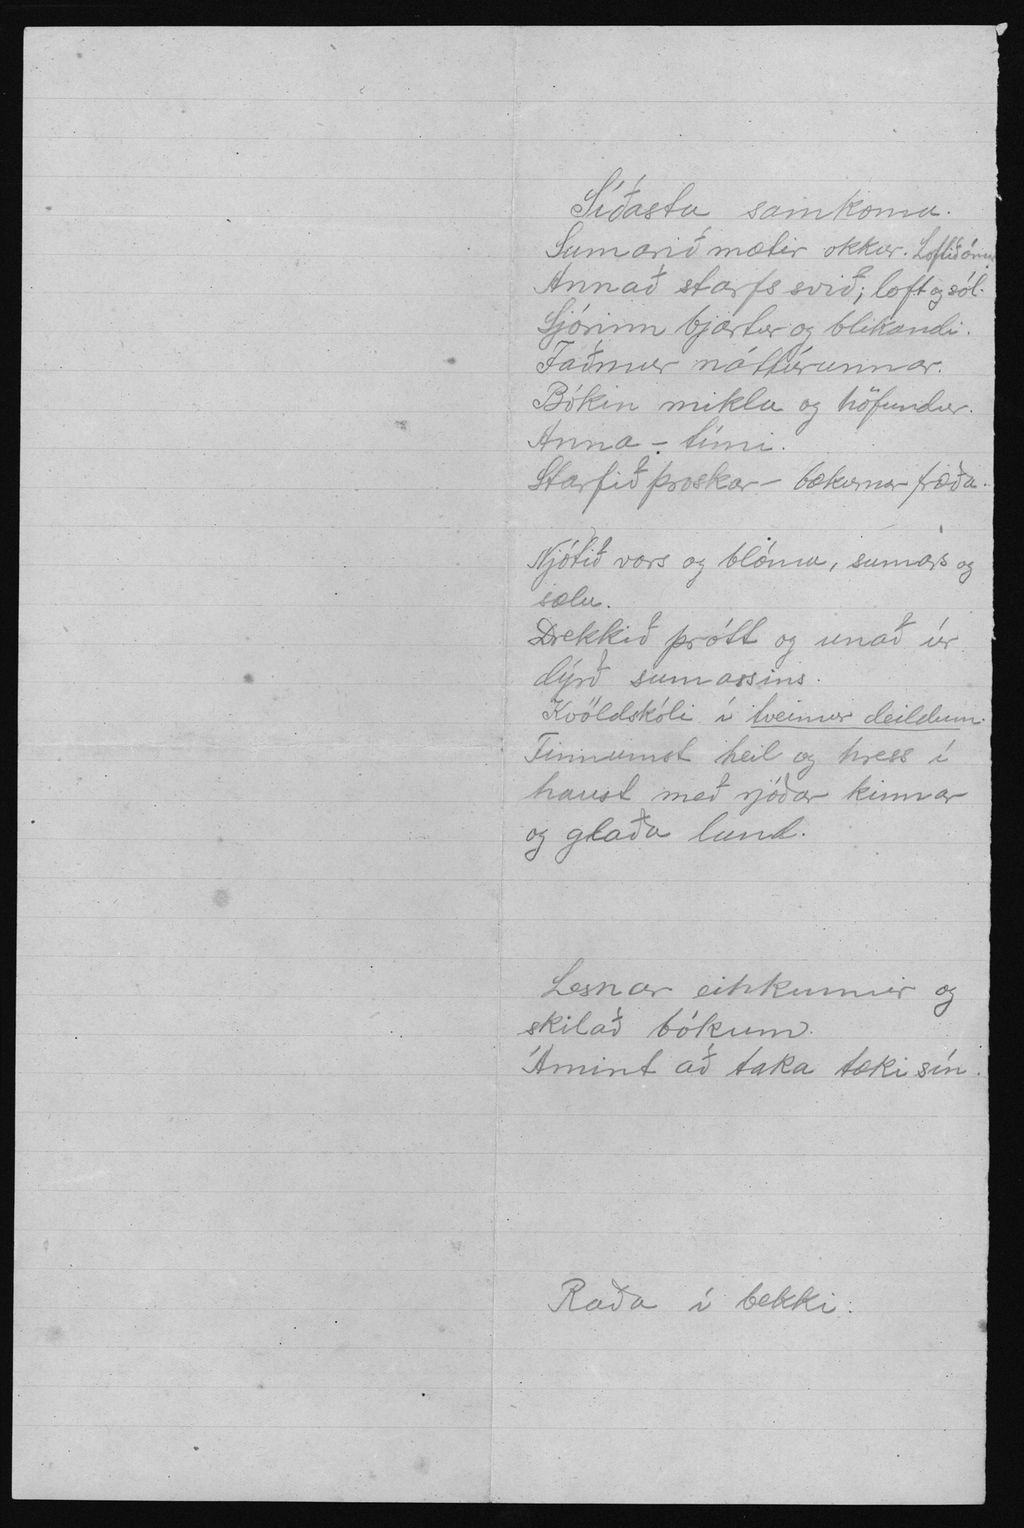 Síðasta samkoma.
Sumarið mætir okkur. Loftið
Annað starfssvið; loft og sól.
Sjórinn bjartur og blikandi.
Faðmur náttúrunnar.
Bókin mikla og höfundur.
Anna - tími.
Starfið þroskar - bækurnar fræða.
Njótið vors og blóma, sumars og
sælu.
Drekkið þrótt og unað úr
dýrð sumarsins.
Kvöldskóli í tveimur deildum.
Finnumst heil og hress í
haust með rjóðar kinnar
og glaða lund.
Lesnar einkunnir og
skilað bókum.
Ámint að taka tæki sín.
Raða í bekki.